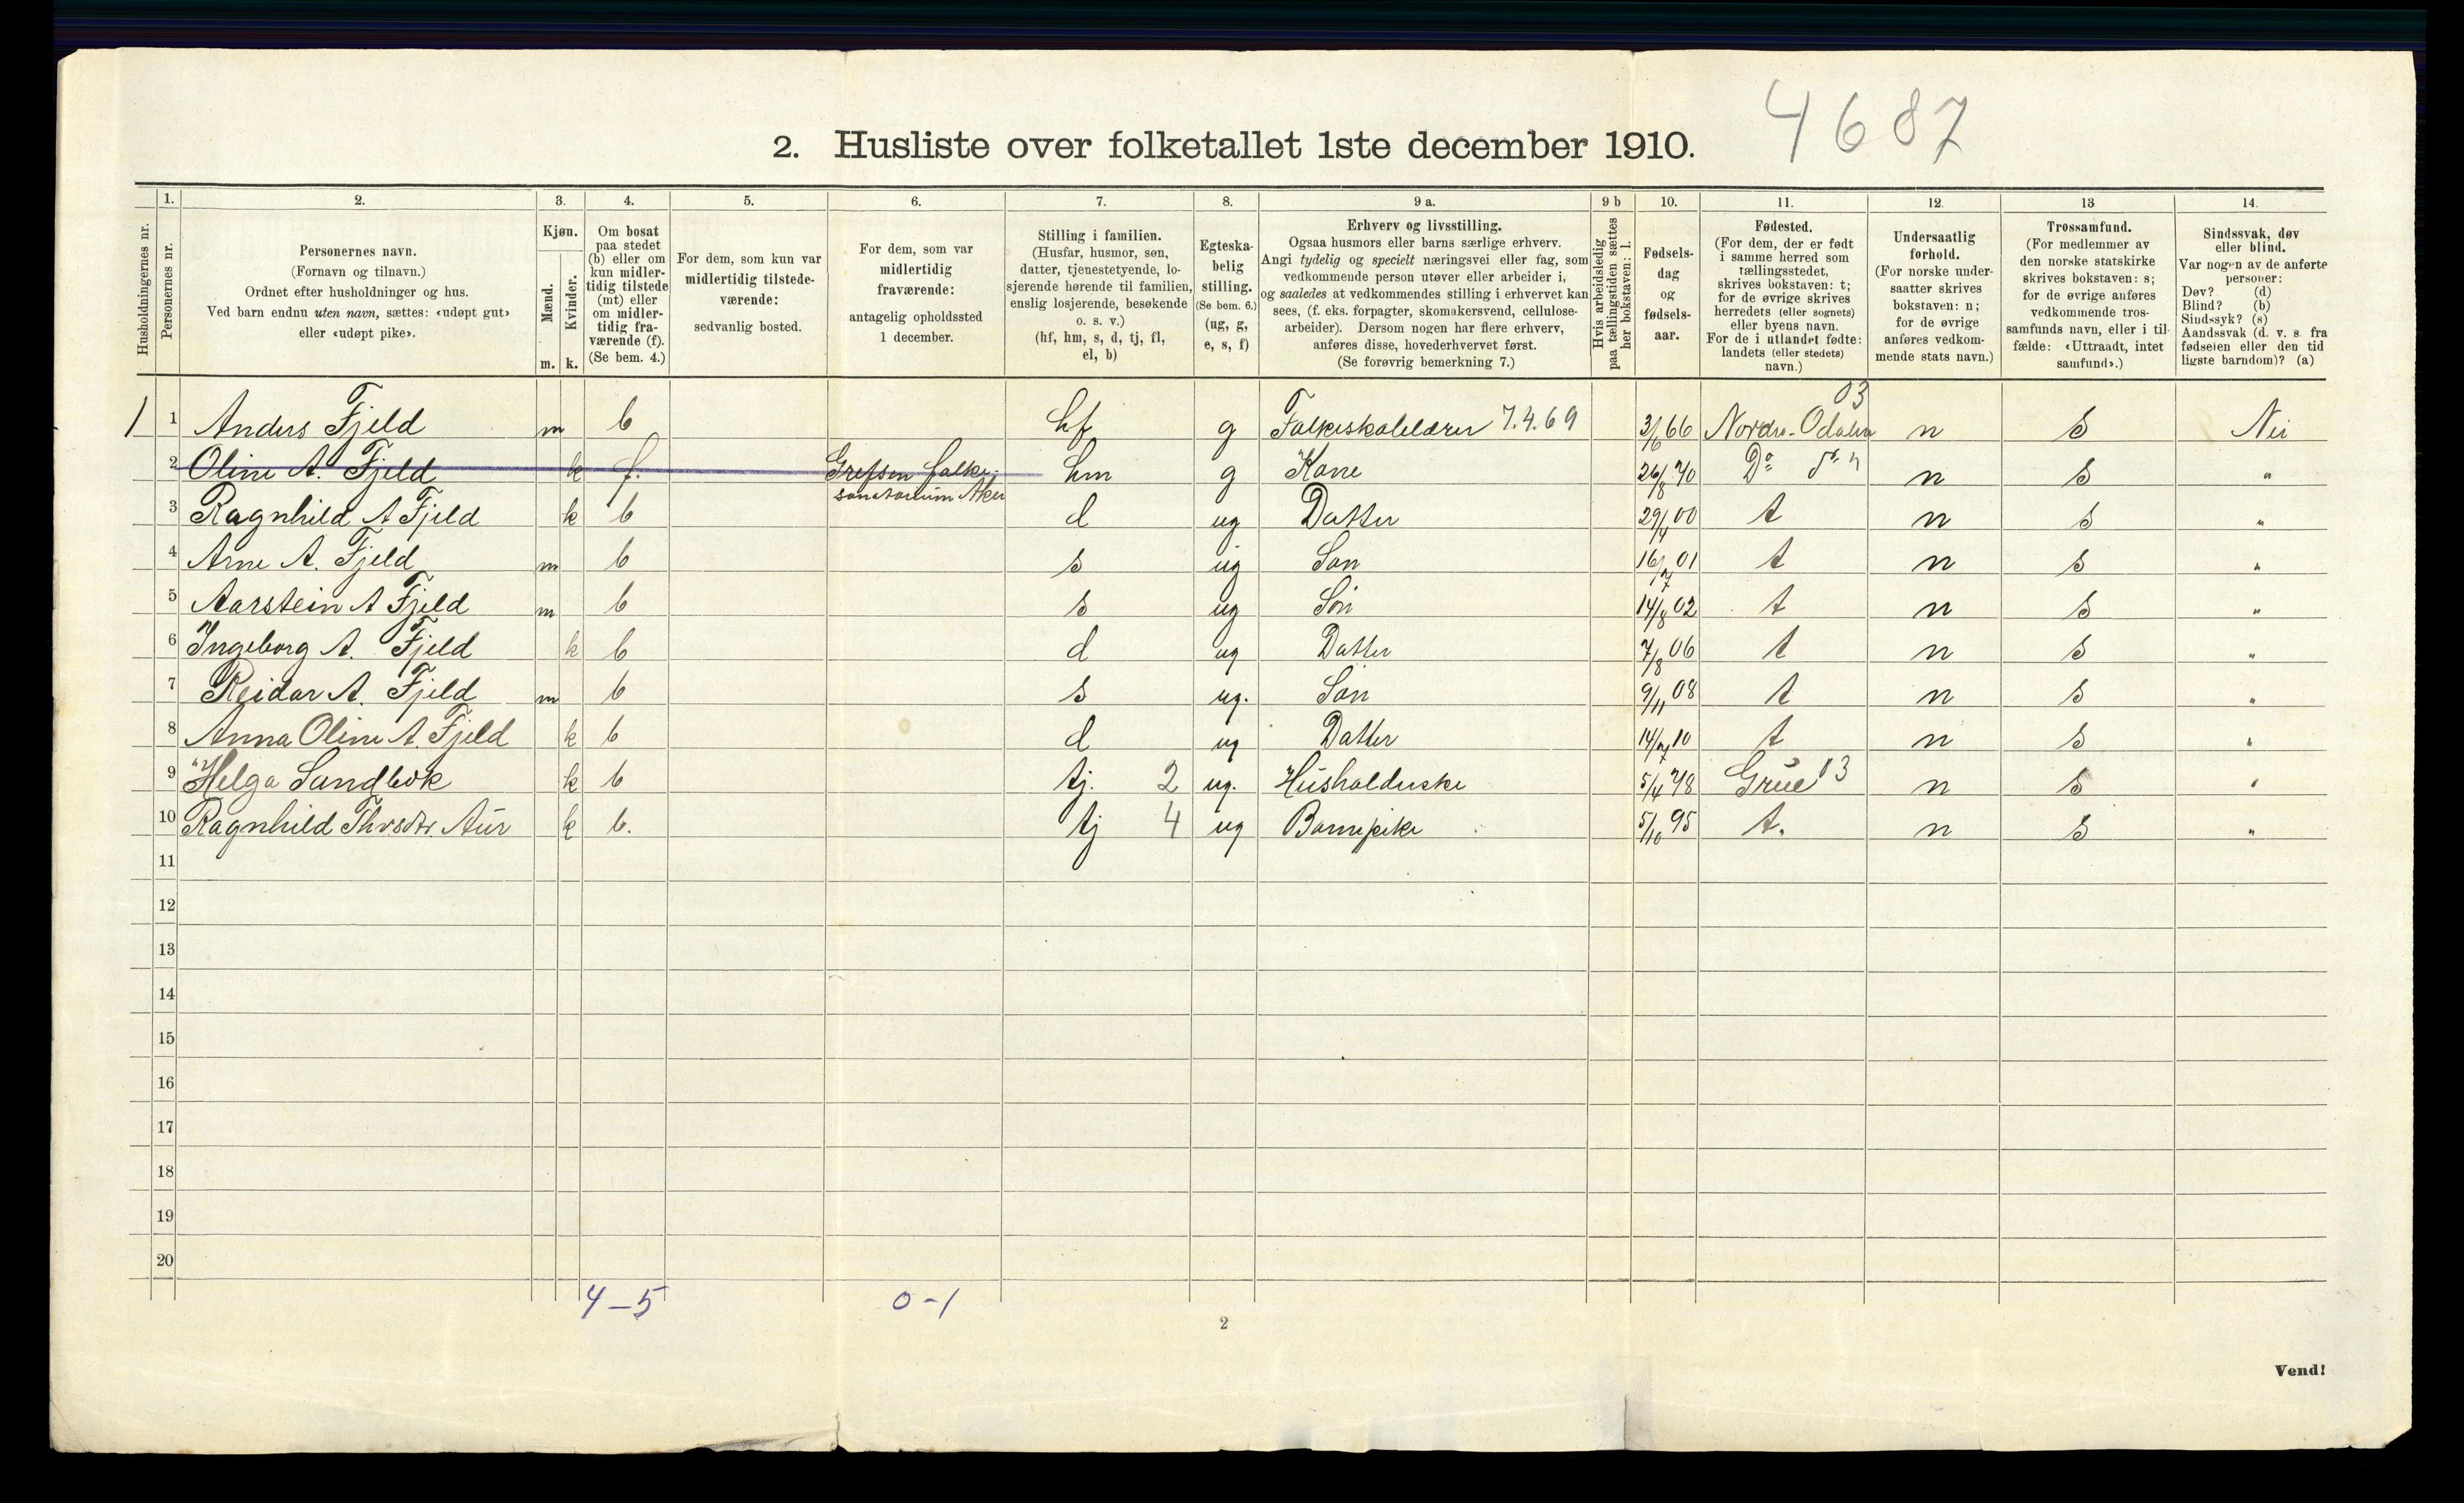 4687
2. Husliste over folketallet 1ste december 1910.
1. 2. 3. 4. 5. 6. 7. 8. 9 a. 9 b 10. 11. 12. 13 14.
Husholdningernes nr.
Personernes nr.
Personernes navn.
(Fornavn og tilnavn.)
Ordnet efter husholdninger og hus.
Ved barn endnu uten navn, sættes: «udøpt gut»
eller «udøpt pike».
Kjøn.
Mænd.
Kvinder.
m. k.
Om bosat
paa stedet
(b) eller om
kun midler-
tidig tilstede
(mt) eller
om midler-
tidig fra-
værende (f).
(Se bem. 4.)
For dem, som kun var
midlertidig tilstede-
værende:
sedvanlig bosted.
For dem, som var
midlertidig
fraværende:
antagelig opholdssted
1 december.
Stilling i familien.
(Husfar, husmor, søn,
datter, tjenestetyende, lo-
sjerende hørende til familien,
enslig losjerende, besøkende
o. s. v.)
(hf, hm, s, d, tj, fl,
el, b)
Egteska-
belig
stilling.
(Se bem. 6.)
(ug, g,
e, s, f)
Erhverv og livsstilling.
Ogsaa husmors eller barns særlige erhverv.
Angi tydelig og specielt næringsvei eller fag, som
vedkommende person utøver eller arbeider i,
og saaledes at vedkommendes stilling i erhvervet kan
sees, (f. eks. forpagter, skomakersvend, cellulose-
arbeider). Dersom nogen har flere erhverv,
anføres disse, hovederhvervet først.
(Se forøvrig bemerkning 7.)
Hvis arbeidsledig
paa tællingstiden sættes
her bokstaven: l.
Fødsels-
dag
og
fødsels-
aar.
Fødested.
(For dem, der er født
i samme herred som
tællingsstedet,
skrives bokstaven: t;
for de øvrige skrives
herredets (eller sognets)
eller byens navn.
For de i utlandet fødte:
landets (eller stedets)
navn.)
Undersaatlig
forhold.
(For norske under-
saatter skrives
bokstaven: n;
for de øvrige
anføres vedkom-
mende stats navn.)
Trossamfund.
(For medlemmer av
den norske statskirke
skrives bokstaven: s;
for de øvrige anføres
vedkommende tros-
samfunds navn, eller i til-
fælde: «Uttraadt, intet
samfund».)
Sindssvak, døv
eller blind.
Var nogen av de anførte
personer:
Døv? (d)
Blind? (b)
Sindssyk? (s)
Aandssvak (d. v. s. fra
fødselen eller den tid
ligste barndom)? (a)
03
1 1 Anders Fjeld m b hf g Folkeskolelærer 7.4.69 3/6 66 Nordre-Odalen n s Nei
2 Oline A. Fjeld k f. Grefsen folke- hm g Kone 26/8 70 Do n s "
sanatorium Aker
3 Ragnhild A Fjeld k b d ug Datter 29/4 00 t n s "
4 Arne A. Fjeld m b s ug Søn 16/7 01 t n s "
5 Aarstein A Fjeld m b s ug Søn 14/8 02 t n s "
6 Ingeborg A. Fjeld k b d ug Datter 7/8 06 t n s "
7 Reidar A. Fjeld m b s ug. Søn 9/11 08 t n s "
8 Anna Oline A. Fjeld k b d ug Datter 14/7 10 t n s "
9 Helga Sandbek k b tj. 2 ug. Husholderske 5/4 78 Grue 03 n s "
10 Ragnhild Thvsdtr. Aur k b. tj 4 ug Barnepike 5/10 95 t. n s "
11
12
13
14
15
16
17
18
19
20
4-5 0-1
2
Vend!